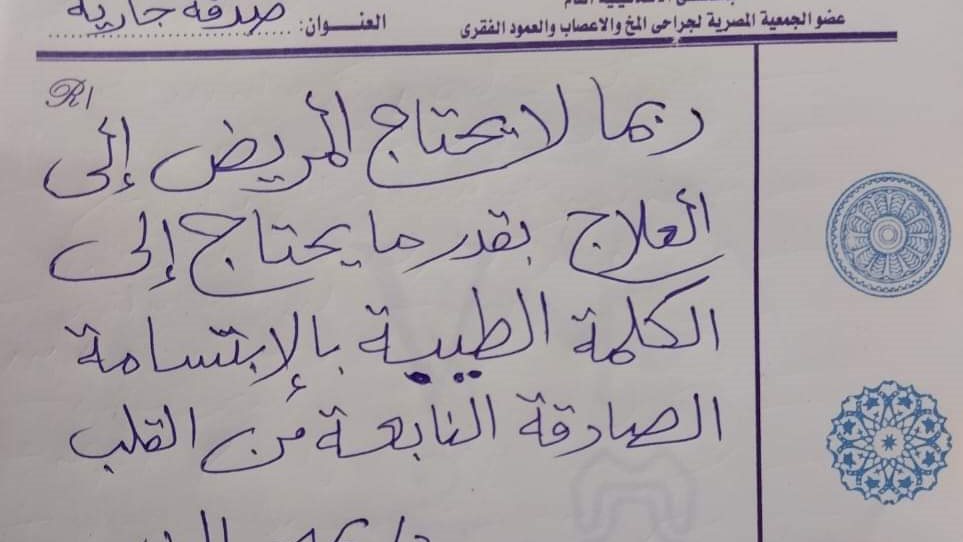 العنوان: صدقة جارية
عضو الجمعية المصرية لجراحى المخ والاعصاب والعمود الفقرى
R/
ربما لا يحتاج المريض إلى
العلاج بقدر ما يحتاج إلى
الكلمة الطيبة بالإبتسامة
الصادقة النابعة من القلب